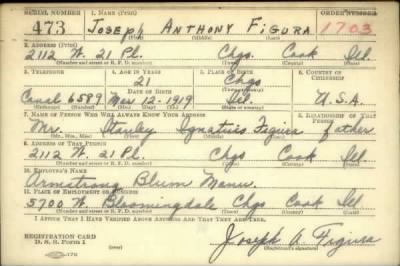 SERIAL NUMBER 1. NAME (Print) ORDER NUMBER
473 JOSEPH ANTHONY FIGURA 1703
(First) (Middle) (Last)
2. ADDRESS (Print)
2112 W. 21 Pl. Chgo. Cook Ill.
(Number and street or R. F. D. number) (Town) (County) (State)
3. TELEPHONE 4. AGE IN YEARS 5. PLACE OF BIRTH 6. COUNTRY OF CITIZENSHIP
21 Chgo
DATE OF BIRTH (Town or county)
Canal 6589 Mar 12-1919 Ill. U.S.A.
(Exchange) (Number) (Mo.) (Day) (Yr.) (State or country)
7. NAME OF PERSON WHO WILL ALWAYS KNOW YOUR ADDRESS 8. RELATIONSHIP OF THAT PERSON
Mr. Stanley Ignatius Figura father
(Mr., Mrs., Miss) (First) (Middle) (Last)
9. ADDRESS OF THAT PERSON
2112 W. 21 Pl. Chgo Cook Ill
(Number and street or R. F. D. number) (Town) (County) (State)
10. EMPLOYER'S NAME
Armstrong Blum Manu.
11. PLACE OF EMPLOYMENT OR BUSINESS
5700 W. Bloomingdale Chgo Cook Ill
(Number and street or R. F. D. number) (Town) (County) (State)
I AFFIRM THAT I HAVE VERIFIED ABOVE ANSWERS AND THAT THEY ARE TRUE.
REGISTRATION CARD
D. S. S. Form 1
Joseph A. Figura
(Registrant's signature)